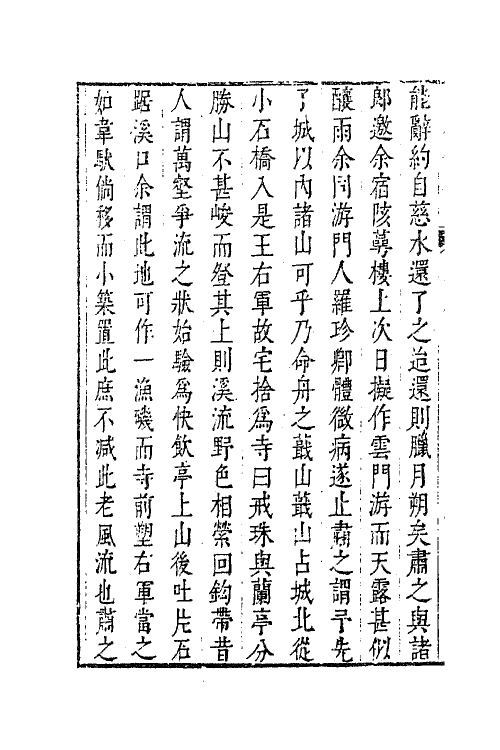 能辭約自慈水還了之迨還則臘月朔矣肅之與諸
郎邀余宿陔萼樓上次日擬作雲門游而天露甚似
釀雨余同游門人羅珍鄰體微病遂止肅之謂予先
了城以內諸山可乎乃命舟之蕺山蕺山占城北從
小石橋入是王右軍故宅捨爲寺曰戒珠與蘭亭分
勝山不甚峻而登其上則溪流野色相縈回鈎帶昔
人謂萬壑爭流之狀始驗爲快飲亭上山後吐片石
踞溪口余謂此地可作一漁磯而寺前塑右軍當之
如韋馱倘移而小築置此庶不减此老風流也肅之